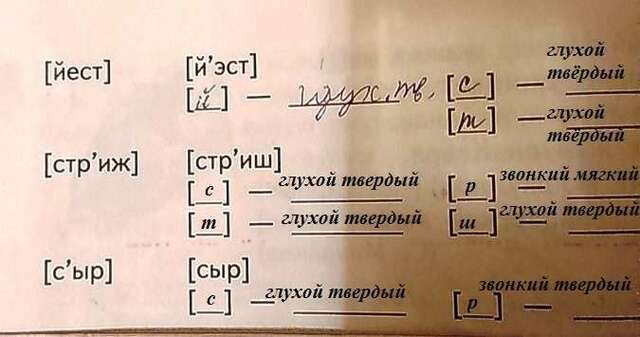 глухой
[йест] [й’эст] твёрдый
[й] — глух. тв. [с] —
[т] — глухой
твёрдый
[стр’иж] [стр’иш]
[с] — глухой твердый [р] — звонкий мягкий
[т] — глухой твердый [ш] — глухой твердый
[с’ыр] [сыр]
[с] — глухой твердый [р] — звонкий твердый